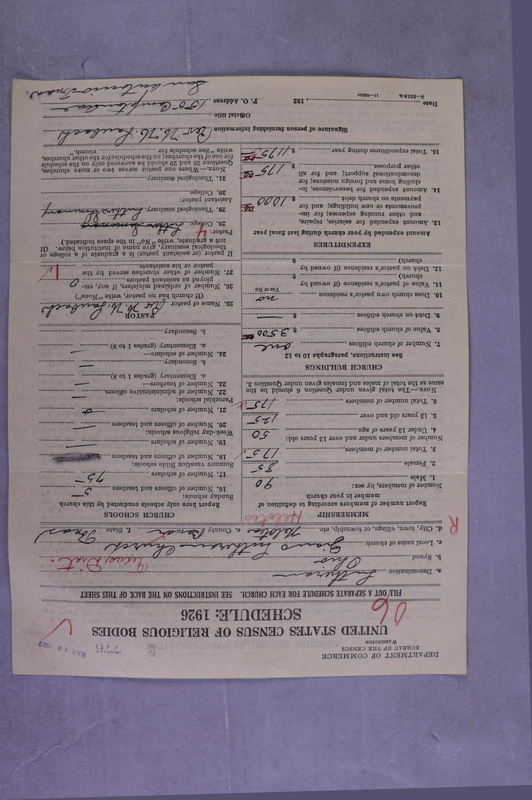 DEPARTMENT OF COMMERCE
BUREAU OF THE CENSUS
WASHINGTON
UNITED STATES CENSUS OF RELIGIOUS BODIES
SCHEDULE: 1926
06
FILL OUT A SEPARATE SCHEDULE FOR EACH CHURCH. SEE INSTRUCTIONS ON THE BACK OF THIS SHEET
a. Denomination Lutheran
b. Synod Ohio Texas Dist.
c. Local name of church Zions Lutheran Church
d. City, town, village, or township, etc. Helotes e. County Bexar f. State Texas
R Helotes
MEMBERSHIP
Report number of members according to definition of member in your church
Number of members, by sex:
1. Male 90
2. Female 85
3. Total number of members, 175
Number of members under and over 13 years old:
4. Under 13 years of age 50
5. 13 years old and over 125
6. Total number of members 175
NOTE.—The total given under Question 6 should be the same as the total of males and females given under Question 3.
CHURCH BUILDINGS
See instructions, paragraphs 10 to 12
7. Number of church edifices one
8. Value of church edifices $ 3500
9. Debt on church edifices $ —
10. Does church own pastor's residence no
Yes or No
11. Value of pastor's residence (if owned by church) $
12. Debt on pastor's residence (if owned by church) $
EXPENDITURES
Amount expended by your church during last fiscal year
13. Amount expended for salaries, repairs, and other running expenses; for improvements or new buildings; and for payments on church debt, $ 1000
14. Amount expended for benevolences, including home and foreign missions; for denominational support; and for all other purposes, $ 175
15. Total expenditures during year, $ 1175
CHURCH SCHOOLS
Report here only schools conducted by this church
Sunday schools:
16. Number of officers and teachers 5
17. Number of scholars 75
Summer vacation Bible schools:
18. Number of officers and teachers
19. Number of scholars —
Week-day religious schools:
20. Number of officers and teachers —
21. Number of scholars 0
Parochial schools:
22. Number of administrative officers —
23. Number of teachers—
a. Elementary (grades 1 to 8) —
b. Secondary —
24. Number of scholars—
a. Elementary (grades 1 to 8) —
b. Secondary
PASTOR
25. Name of pastor Rev. W. H.
(If church has no pastor, write "None")
26. Number of ordained ministers, if any, employed as assistant pastors 0
27. Number of other churches served by the pastor or his assistants
If pastor (or assistant pastor) is a graduate of a college or theological seminary, give name of institution below. (If not a graduate, write "No" in the space indicated.)
Pastor:
28. College
29. Theological seminary
Assistant pastor:
30. College
31. Theological seminary
NOTE.—When one pastor serves two or more churches, Questions 28 and 29 should be answered only on the schedule for one of the churches; on the schedule for the other churches, write "See schedule for church."
Signature of person furnishing information Rev. W. H.
Official title
P. O. Address
San Antonio Texas
Date , 192